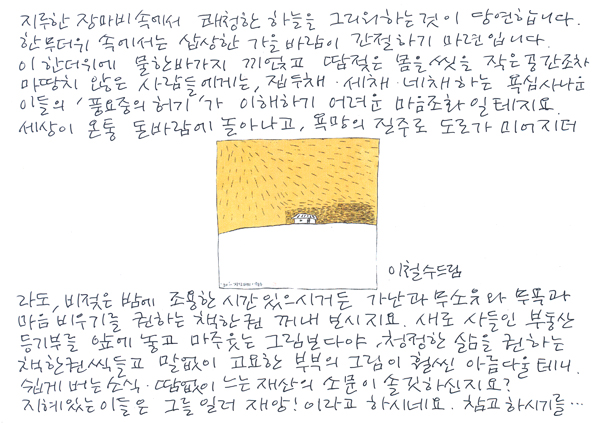 지루한 장마비 속에서 쾌청한 하늘을 그리워하는 것이 당연합니다.
한 무더위 속에서는 삽상한 가을 바람이 간절하기 마련입니다.
이 한더위에 물 한바가지 끼얹고 땀젖은 몸을 씻을 작은 공간조차
마땅치 않은 사람들에게는, 집두채·세채·네채하는 욕심사나운
이들의 '풍요중의 허기'가 이해하기 어려운 마음조화일테지요.
세상이 온통 돈바람에 놀아나고, 욕망의 질주로 도로가 미어지더
이철수드림
라도, 비젖은 밤에 조용한 시간 있으시거든 가난과 무소유와 무욕과
마음 비우기를 권하는 책 한권 꺼내 보시지요. 새로 사들인 부동산
등기부를 앞에 놓고 마주 웃는 그림보다야, 청정한 삶을 권하는
책 한권씩 들고 말없이 고요한 부부의 그림이 훨씬 아름다울테니.
쉽게 버는 소식·땀없이 느는 재산의 소문이 솔깃하신지요?
지혜있는 이들은 그를 일러 재앙! 이라고 하시네요. 참고하시기를…